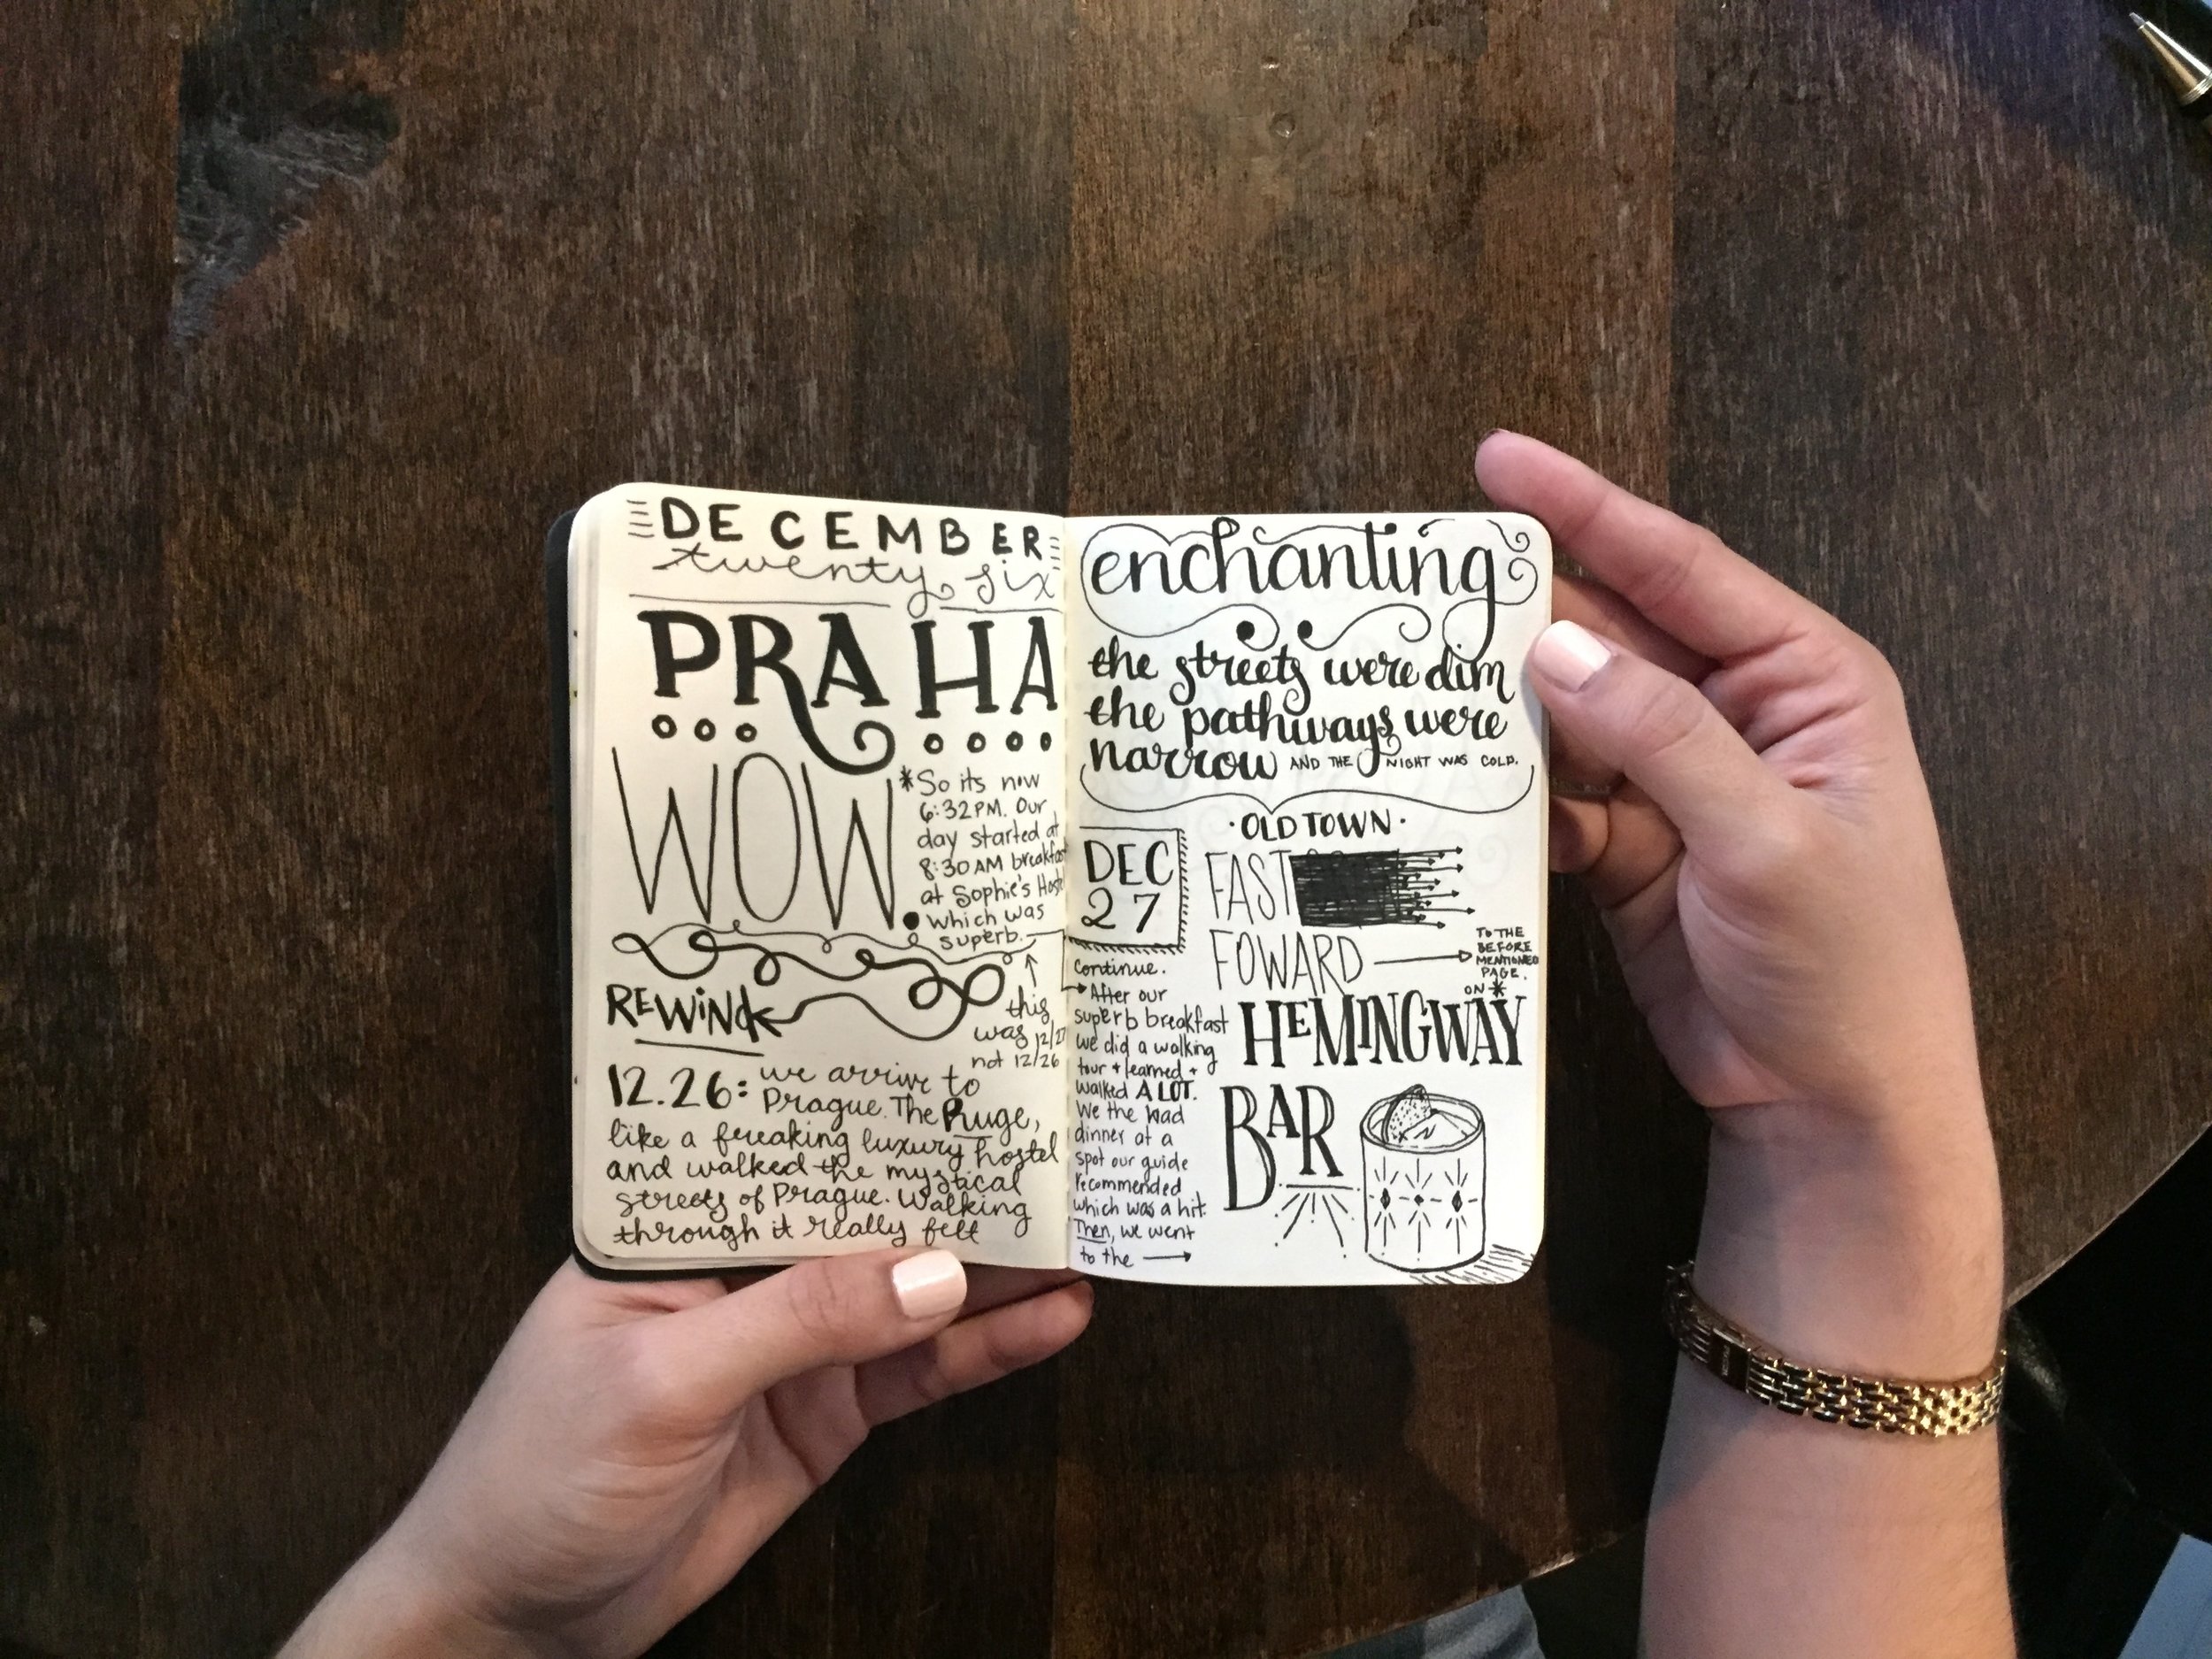 DECEMBER
twenty six
PRAHA
WOW
*So its now
6:32PM. Our
day started at
8:30AM breakfast
at Sophie's Hostel
which was
superb.
REWIND
this
was 12/27
not 12/26
12.26: we arrive to
Prague. The Ruge,
like a freaking luxury hostel
and walked the mystical
streets of Prague. Walking
through it really felt
enchanting
the streets were dim
the pathways were
narrow AND THE NIGHT WAS COLD.
·OLD TOWN·
DEC
27
continue.
After our
superb breakfast
we did a walking
tour + learned +
walked A LOT.
We the had
dinner at a
spot our guide
recommended
which was a hit.
Then, we went
to the
FAST
FOWARD
TO THE
BEFORE
MENTIONED
PAGE.
ON *
HEMINGWAY
BAR